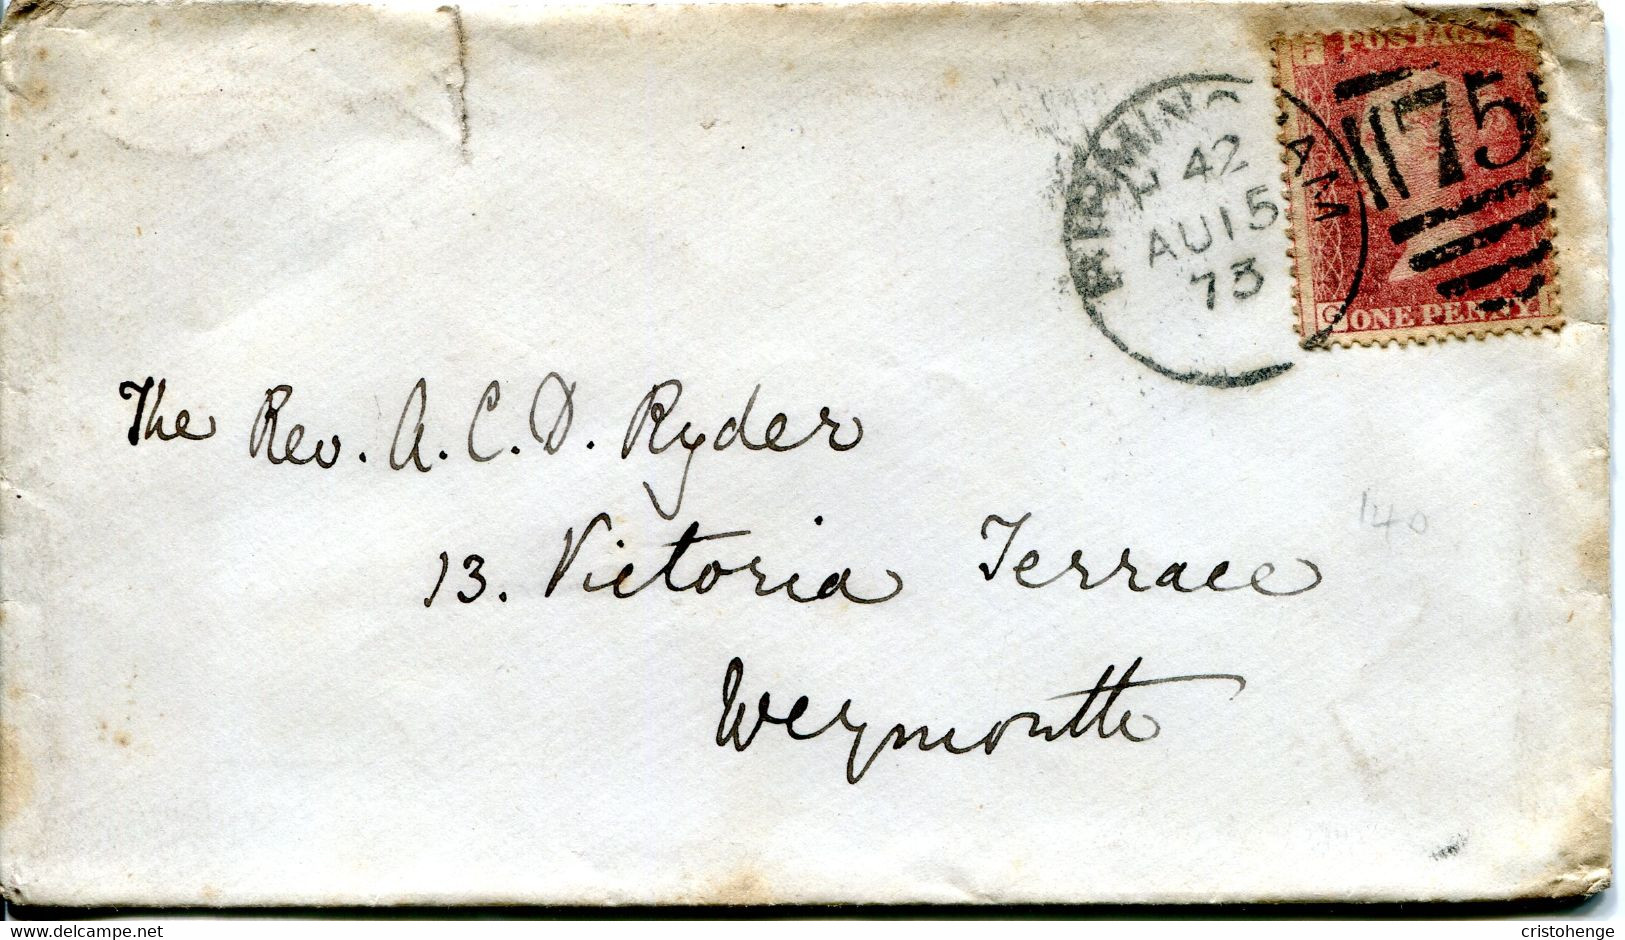 F POSTAGE F
75
ONE PENNY
BIRMINGHAM
42
AU 15
73
The Rev. A. C. D. Ryder
13. Victoria Terrace
Weymouth
140
delcampe.net
cristohenge